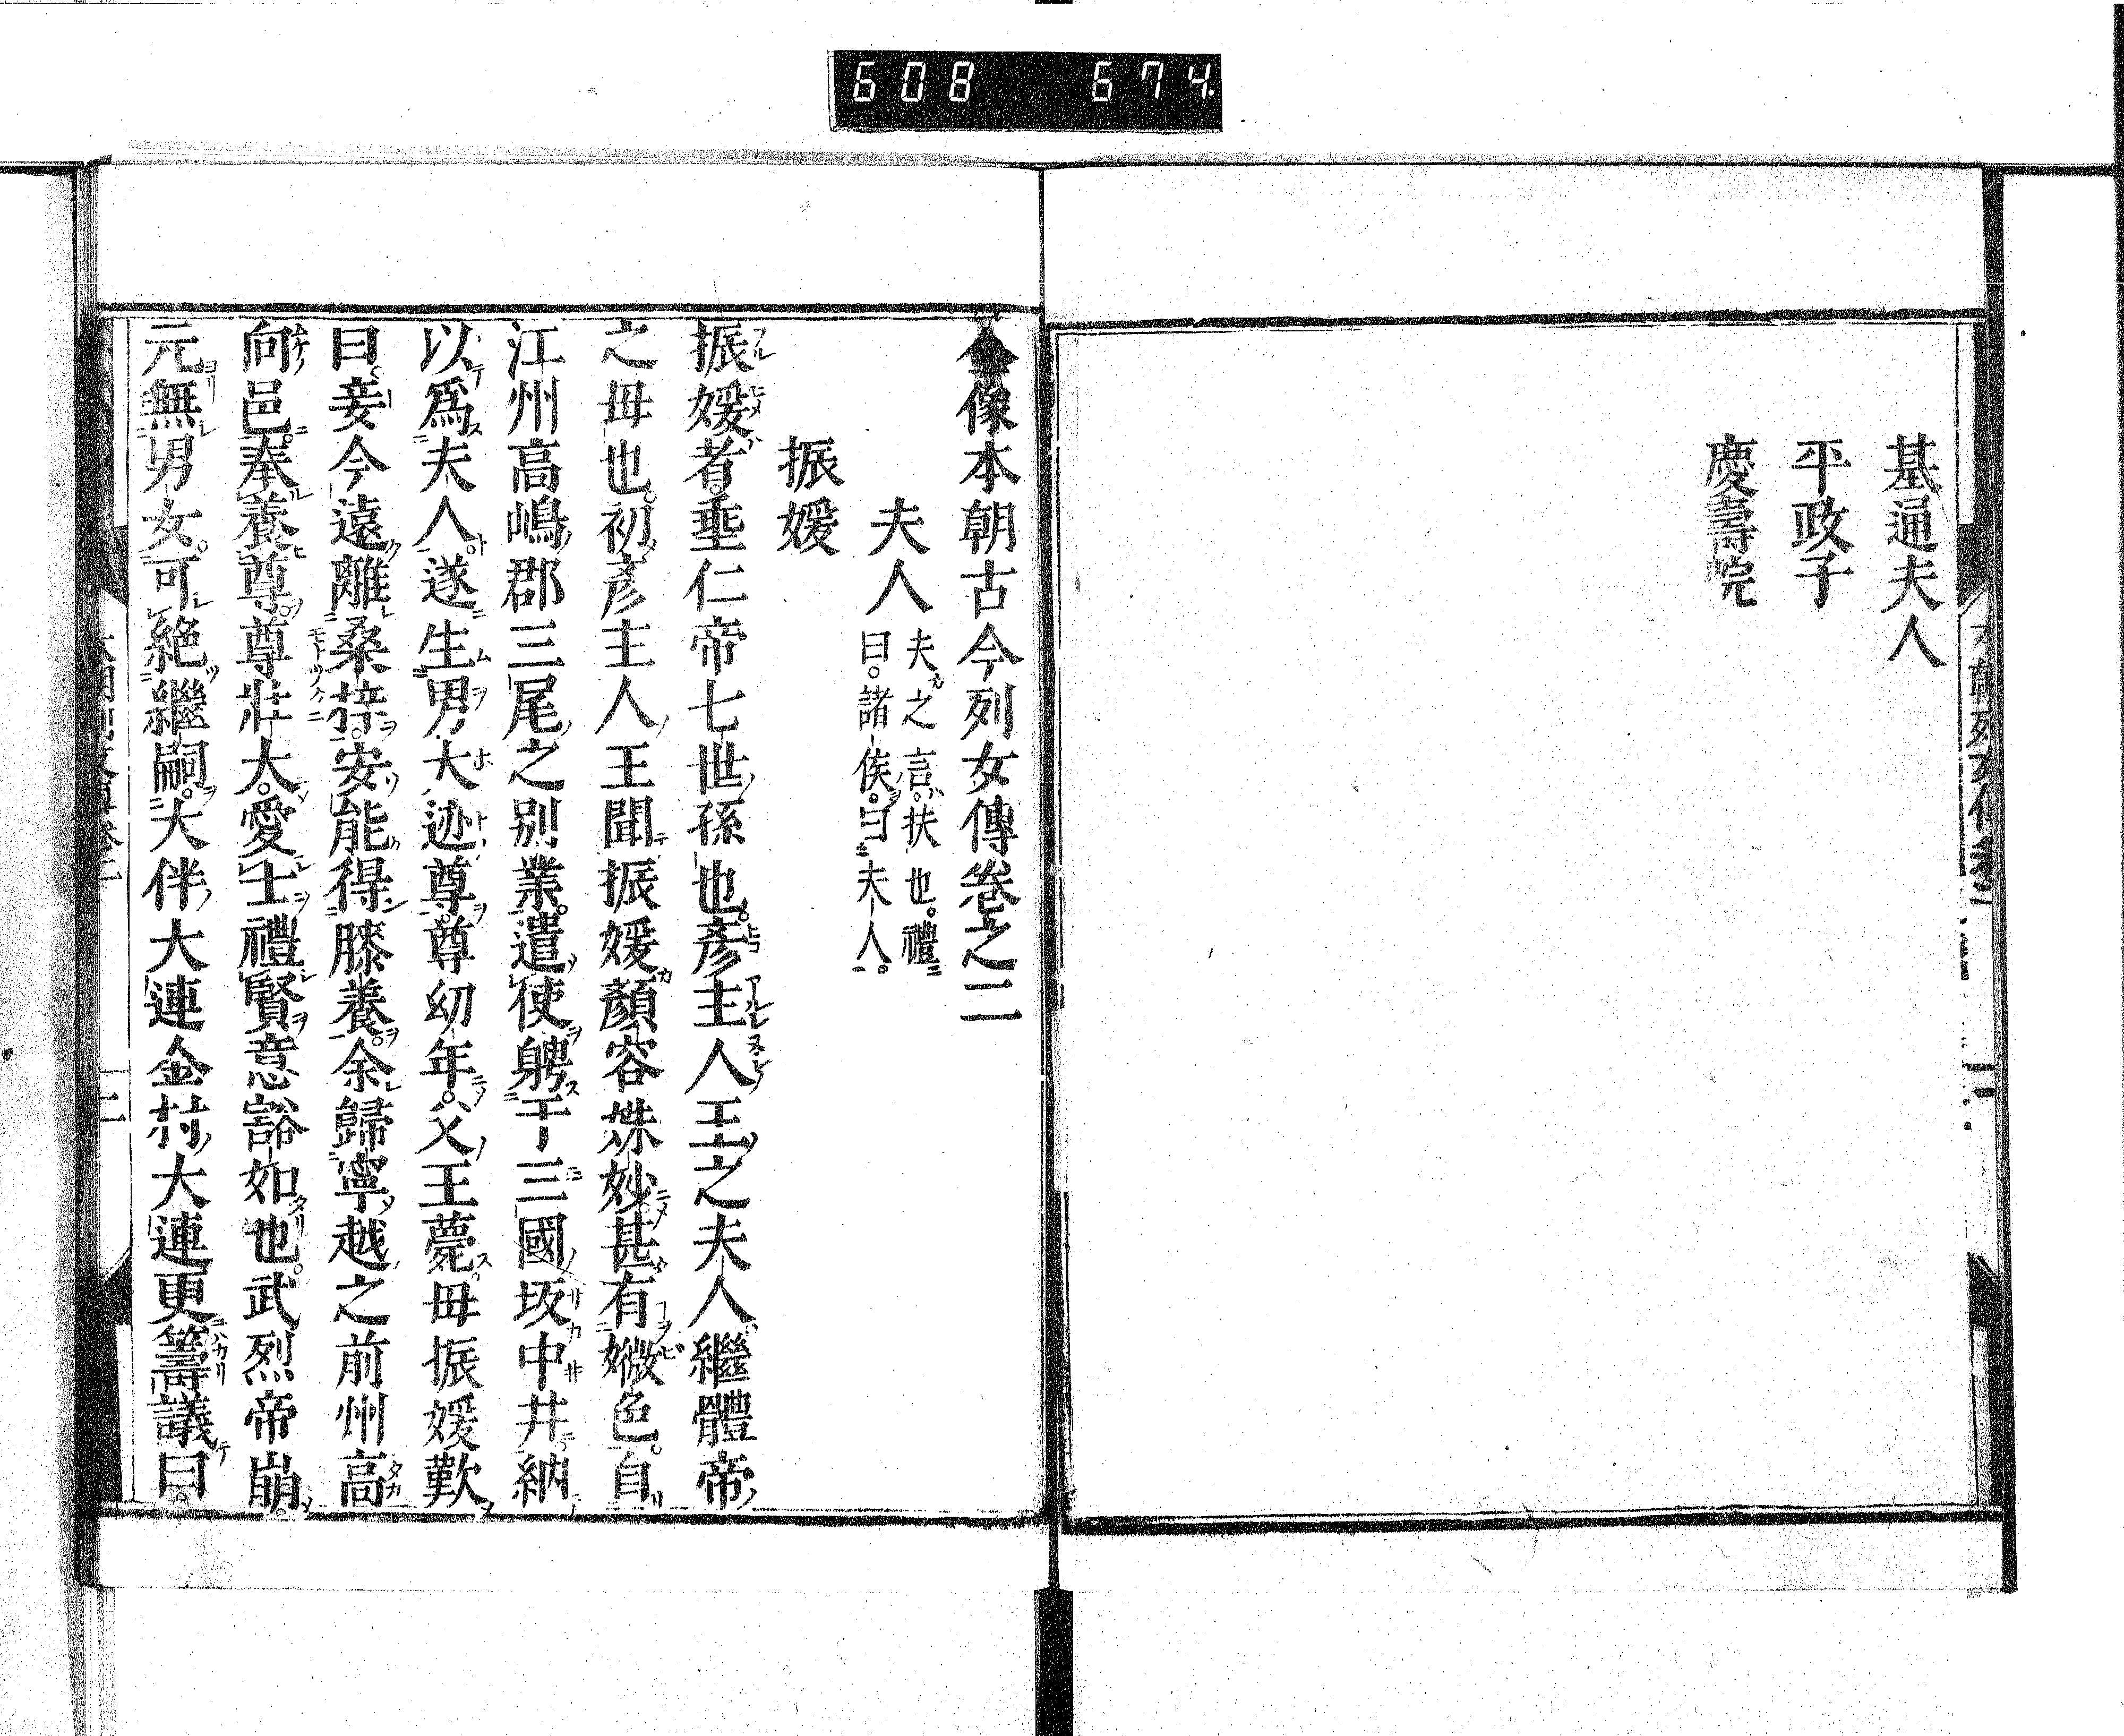 608 674
基通夫人
平政子
慶壽院
全像本朝古今列女傳卷之二
夫人 夫之言。扶也。禮
曰。諸侯。曰夫人。
振媛
振媛者。垂仁帝七世孫也。彥主人王之夫人繼體帝
之毋也。初彥主人王聞振媛顏容姝妙甚有媺色。自
江州高嶋郡三尾之别業。遣使聘于三國坂中井納
以爲夫人。遂生男大迹尊。尊幼年。父王薨。毋振媛歎
曰。妾今遠離桑梓。安能得膝養。余歸寧越之前州高
向邑。奉養尊。尊壯大。愛士禮賢意豁如也。武烈帝崩。
元無男女。可絶繼嗣。大伴大連金村大連更籌議曰。